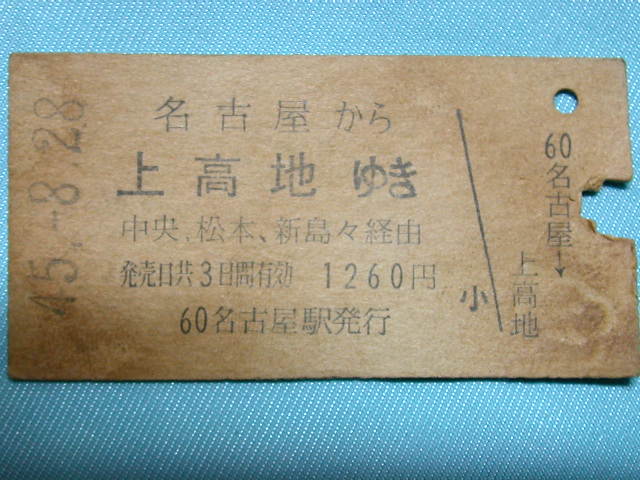 45.-8.28
名古屋から
上高地ゆき
中央、松本、新島々経由
発売日共3日間有効 1260円
60名古屋駅発行
小
60名古屋→
上高地